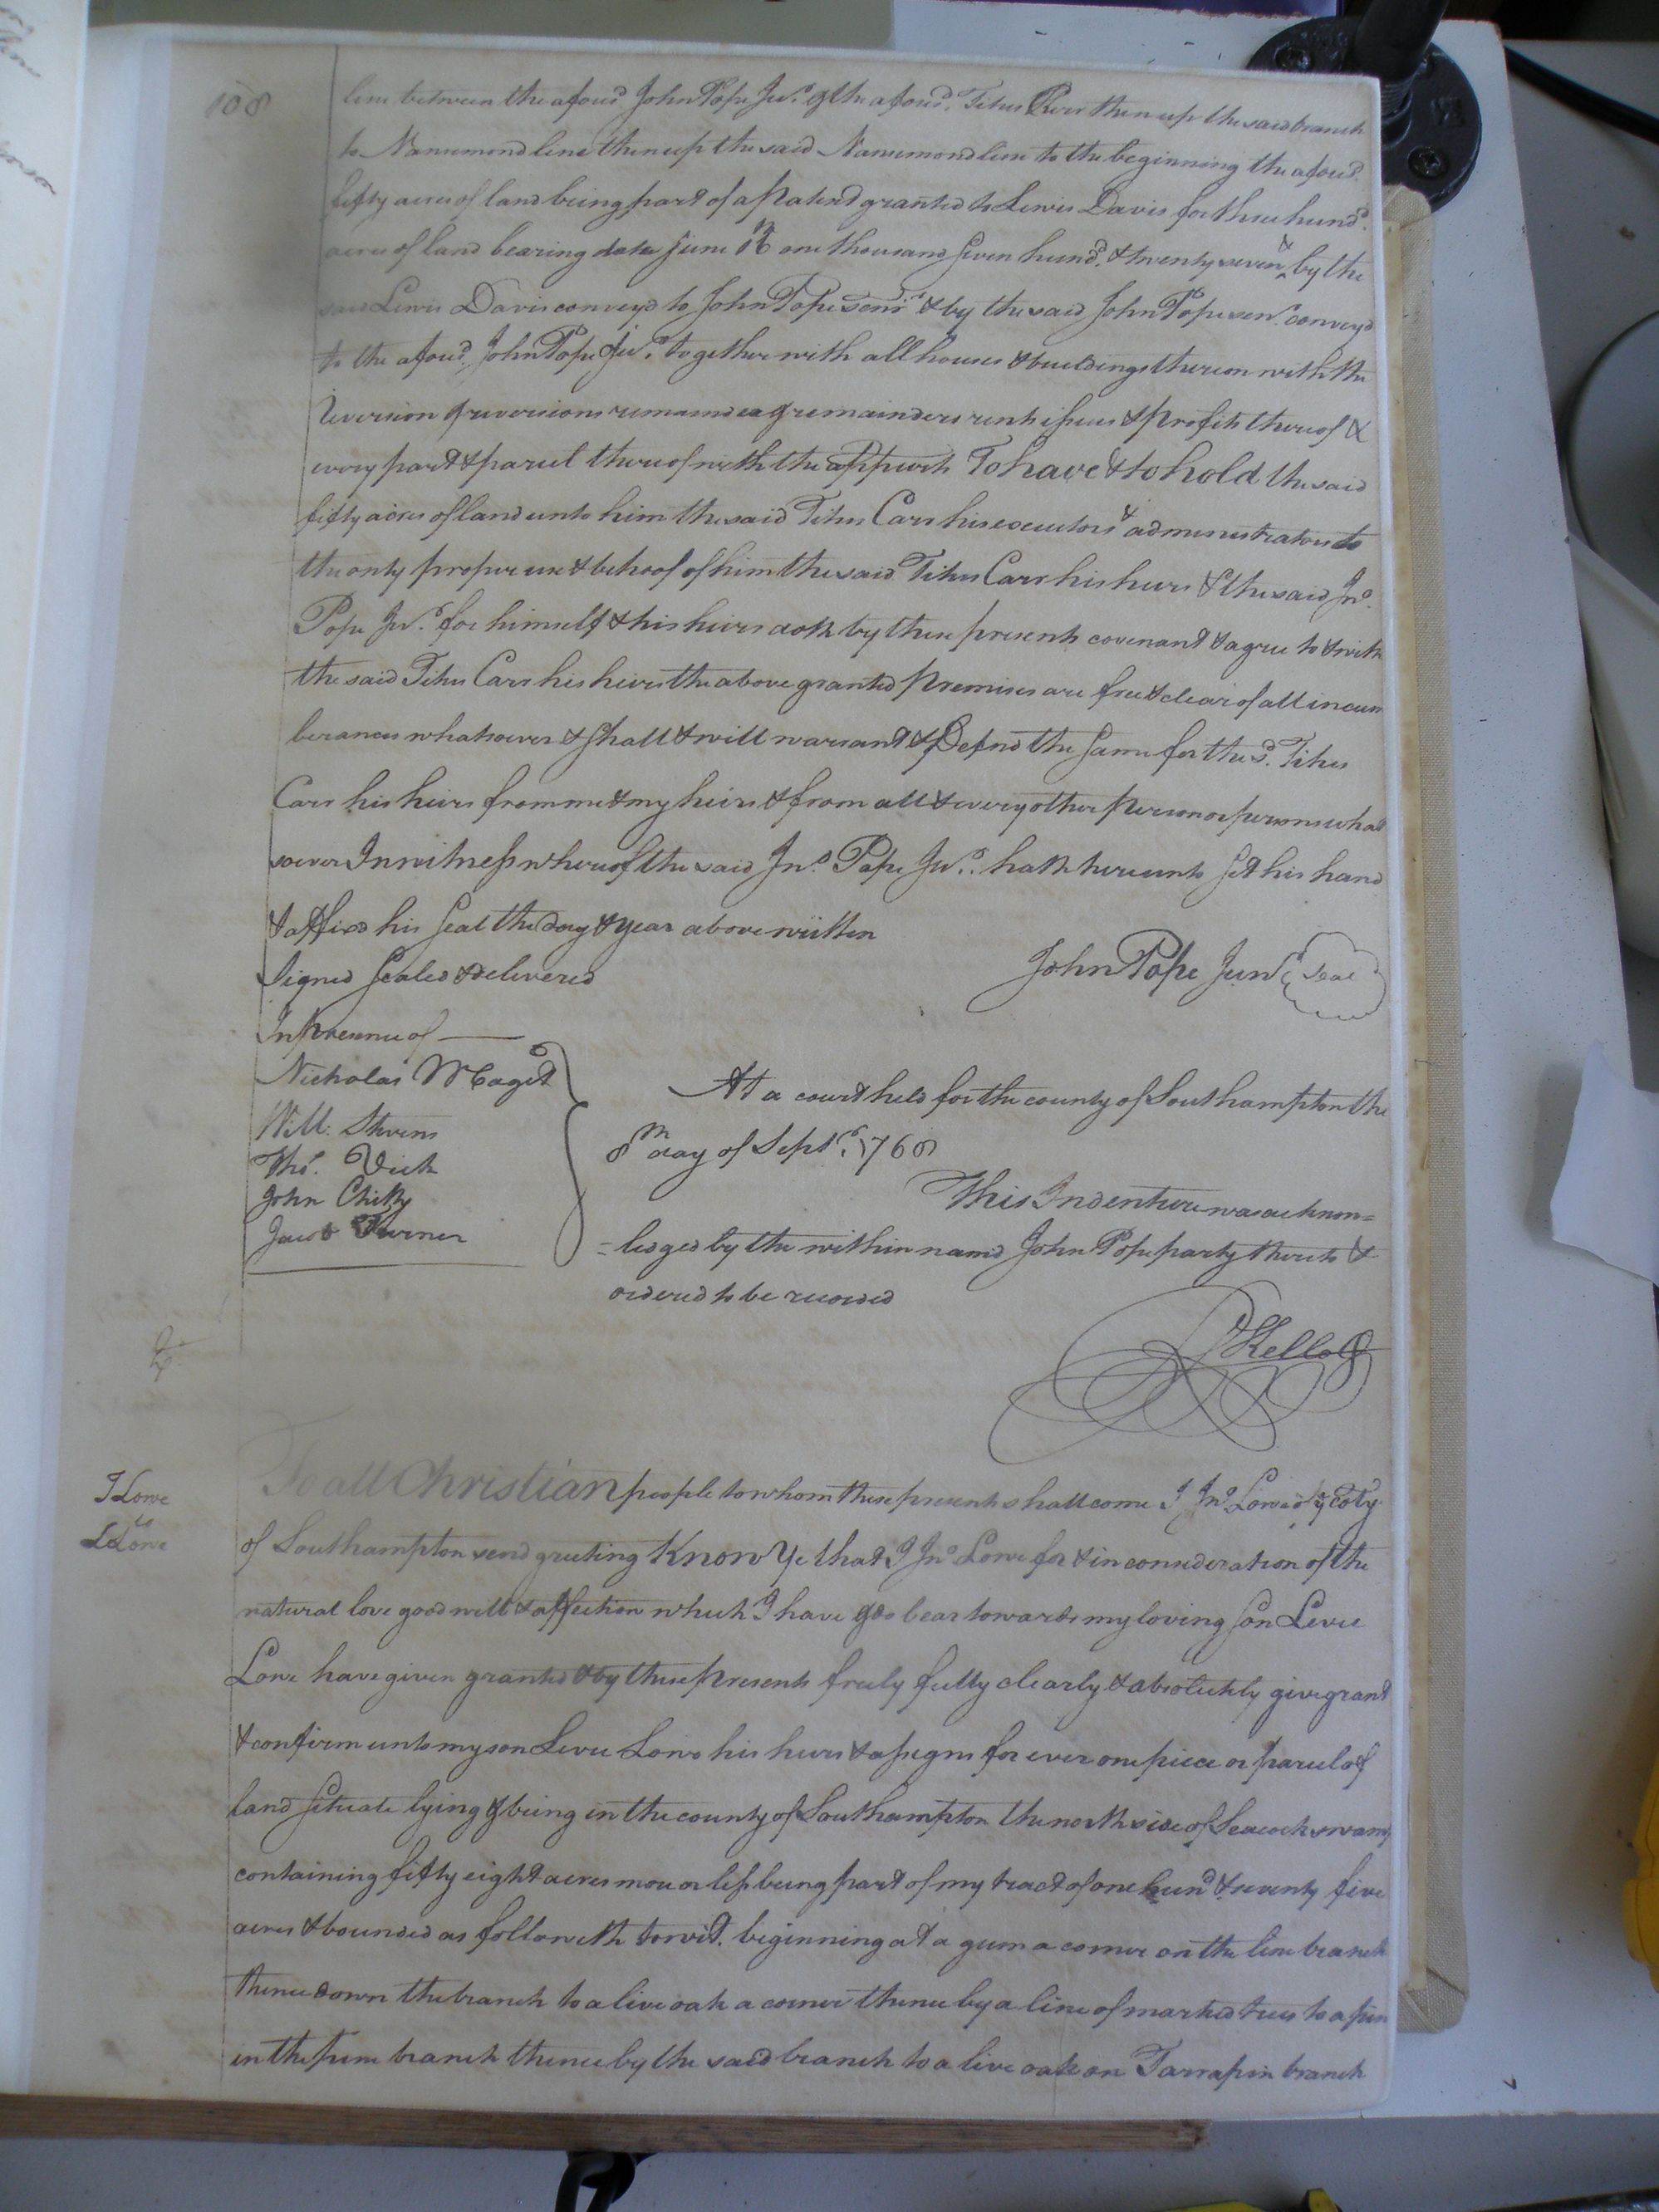 108
line between the afores.d John Pope Jun.r & the afores.d Titus Carr then up the said branch
to Nansemond line then up the said Nansemond line to the beginning the afores.d
fifty acres of land being part of a patent granted to Lewis Davis for three hund.d
acres of land bearing date June 16 one thousand seven hund.d & twenty seven & by the
said Lewis Davis convey'd to John Pope sen.r & by the said John Pope sen.r convey'd
to the afores.d John Pope Jun.r together with all houses & buildings thereon with the
reversion & reversions remainder & remainders rents issues & profits thereof &
every part & parcel thereof with the appurts To have & to hold the said
fifty acres of land unto him the said Titus Carr his executors & administrators to
the only proper use & behoof of him the said Titus Carr his heirs & the said Jn.o
Pope Jun.r for himself & his heirs doth by these presents covenant & agree to & with
the said Titus Carr his heirs the above granted premises are free & clear of all incum
berances whatsoever & shall & will warrant & Defend the same for the s.d Titus
Carr his heirs from me & my heirs & from all & every other person or persons what
soever In witness whereof the said Jn.o Pope Jun.r hath hereunto set his hand
& affixd his seal the day & year above written
Signed sealed & delivered
John Pope Jun.r Seal
In presence of
Nicholas Maget
Will. Stevens
Tho.s Vick
John Chitty
Jacob Turner
At a court held for the county of Southampton the
8th day of Sept.r 1768
This Indenture was acknow=
=ledged by the within namd John Pope party thereto &
ordered to be recorded
R Kello
J Lowe
to
L Lowe
To all Christian people to whom these presents shall come I Jn.o Lowe of ye Coty
of Southampton send greeting Know Ye that I Jn.o Lowe for & in consideration of the
natural love good will & affection which I have & do bear towards my loving son Levie
Lowe have given granted & by these presents freely fully clearly & absolutely give grant
& confirm unto my son Levie Lowe his heirs & assigns for ever one piece or parcel of
land situate lying & being in the county of Southampton the north side of Seacock swamp
containing fifty eight acres more or less being part of my tract of one hund.d & seventy five
acres & bounded as followeth towit. beginning at a gum a corner on the line branch
thence down the branch to a live oak a corner thence by a line of marked trees to a pine
in the pine branch thence by the said branch to a live oak on Tarrapin branch